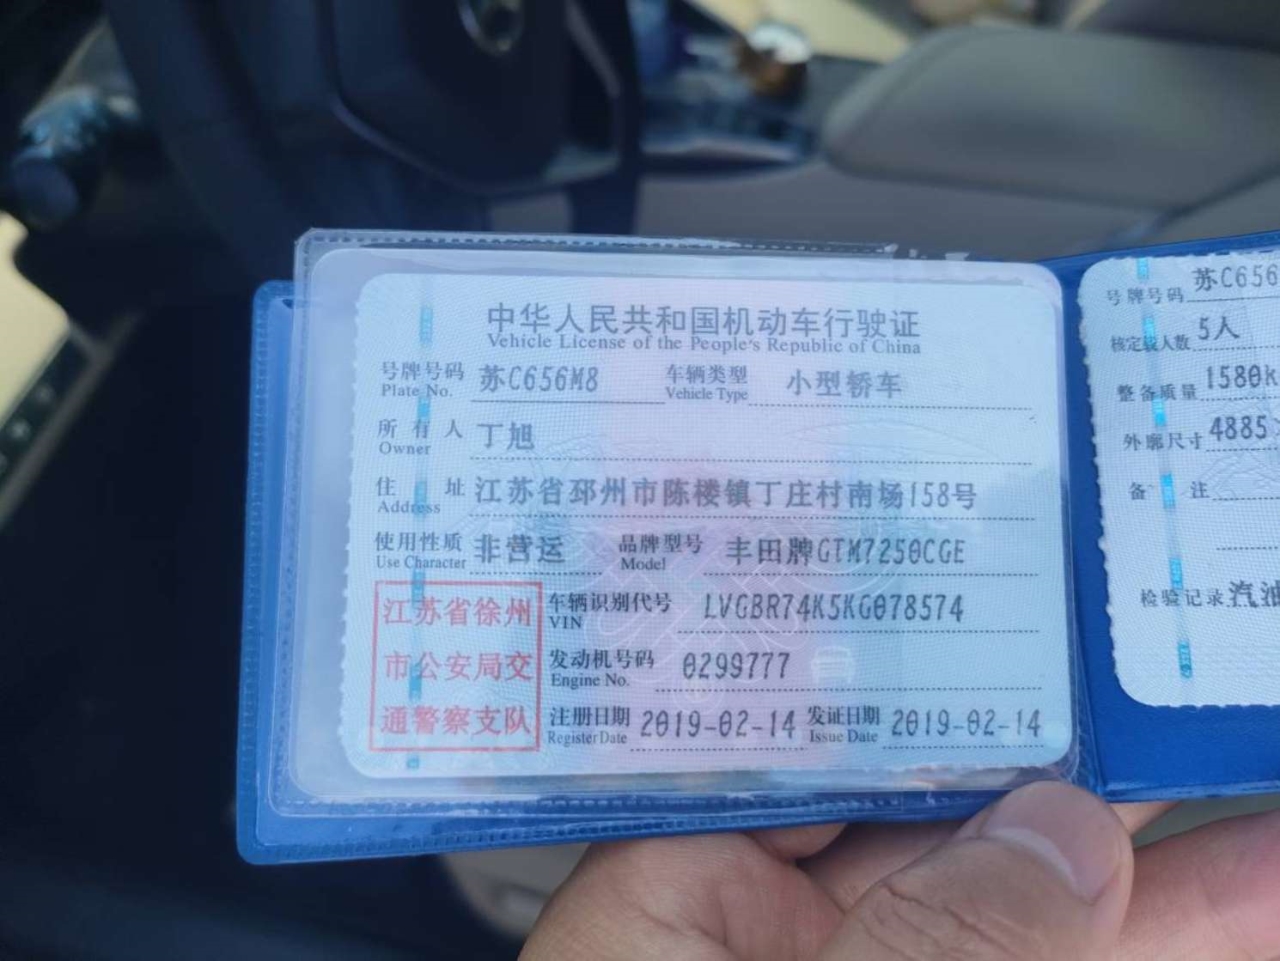 中华人民共和国机动车行驶证
Vehicle License of the People's Republic of China
号牌号码 苏C656M8 车辆类型 小型轿车
Plate No. Vehicle Type
所有人 丁旭
Owner
住址 江苏省邳州市陈楼镇丁庄村南场158号
Address
使用性质 非营运 品牌型号 丰田牌GTM7250CGE
Use Character Model
江苏省徐州
市公安局交
通警察支队
车辆识别代号 LVGBR74K5KG078574
VIN
发动机号码 0299777
Engine No.
注册日期 2019-02-14 发证日期 2019-02-14
Register Date Issue Date
号牌号码 苏C656
核定载人数 5人
整备质量 1580k
外廓尺寸 4885
备注
检验记录 汽油